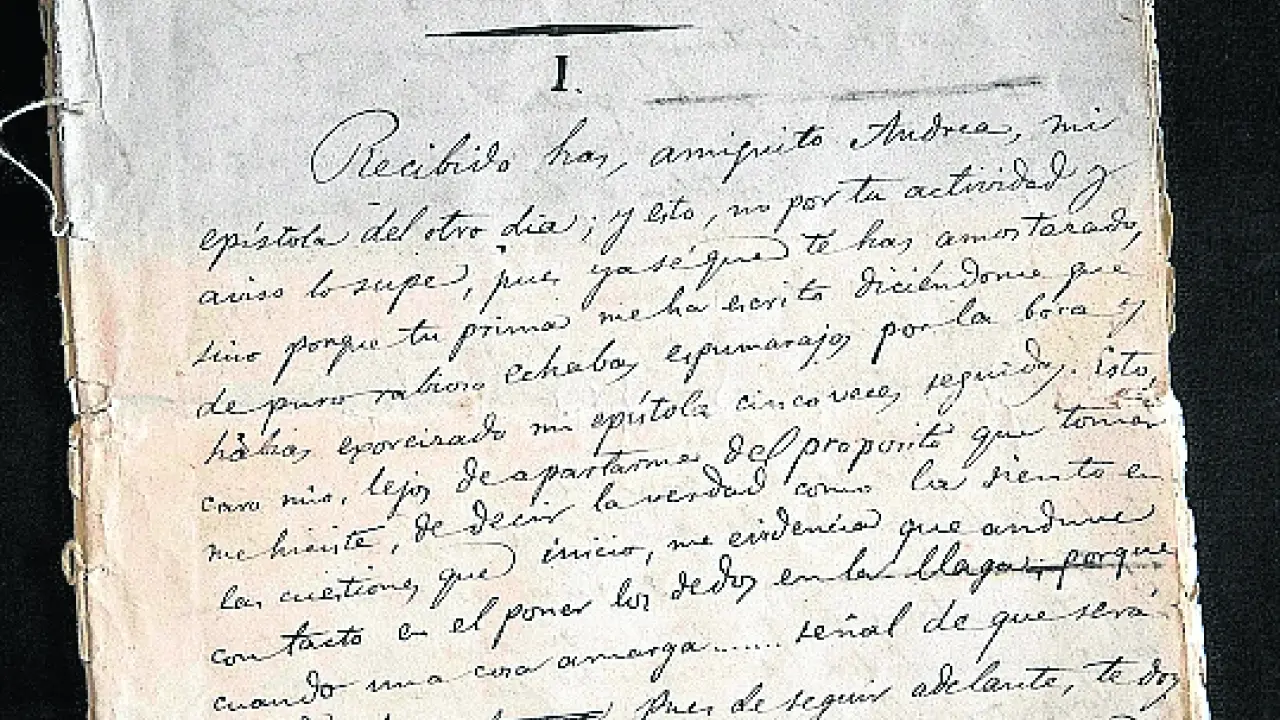 I.
Recibido has, amiguito Andrea, mi
epístola del otro dia; y esto, no por tu actividad y
aviso lo supe, pues ya sé que te has amostazado,
sino porque tu prima me ha escrito diciéndome que
de puro rabioso echabas espumarajos por la boca y
habias exorcizado mi epístola cinco veces seguidas. Esto,
caro mio, lejos de apartarme del proposito que tomar
me hiciste, de decir la verdad como la siento en
las cuestiones que inicio, me evidencia que anduve
con tacto en el poner los dedos en la llaga, porque
cuando una cosa amarga...... señal de que será
pues de seguir adelante, te doy